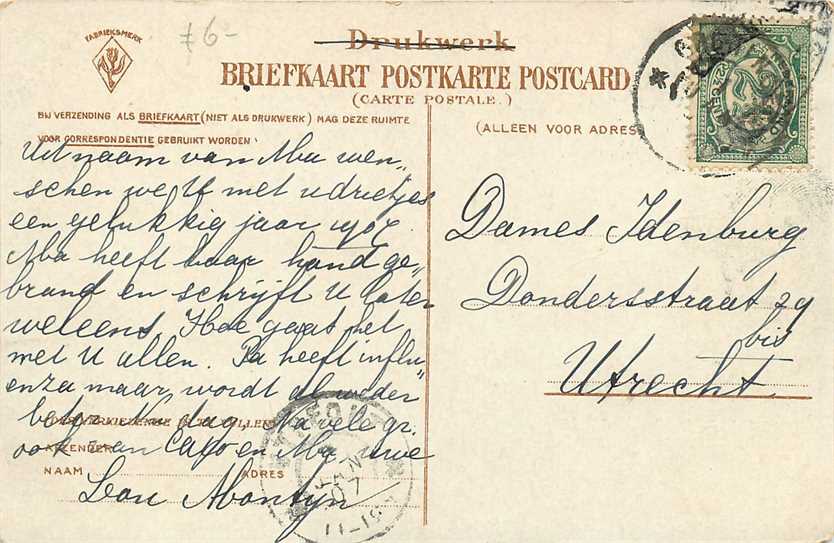 FABRIEKSMERK
f 6-
Drukwerk
BRIEFKAART POSTKARTE POSTCARD
(CARTE POSTALE.)
BIJ VERZENDING ALS BRIEFKAART (NIET ALS DRUKWERK) MAG DEZE RUIMTE
VOOR CORRESPONDENTIE GEBRUIKT WORDEN
(ALLEEN VOOR ADRES
Uit naam van Ma wen„
schen we U met u drietjes
een gelukkig jaar 1907.
Ma heeft haar hand ge„
brand en schrijft U later
weleens. Hoe gaat het
met U allen. Pa heeft influ„
enza maar wordt al weder
beter. Nu dag. Na vele gr.
ook van Capo en Ma uwe
AFZENDER
NAAM ADRES
Lou Montijn
Dames Idenburg
Dondersstraat 29
bis
Utrecht
JAN
07